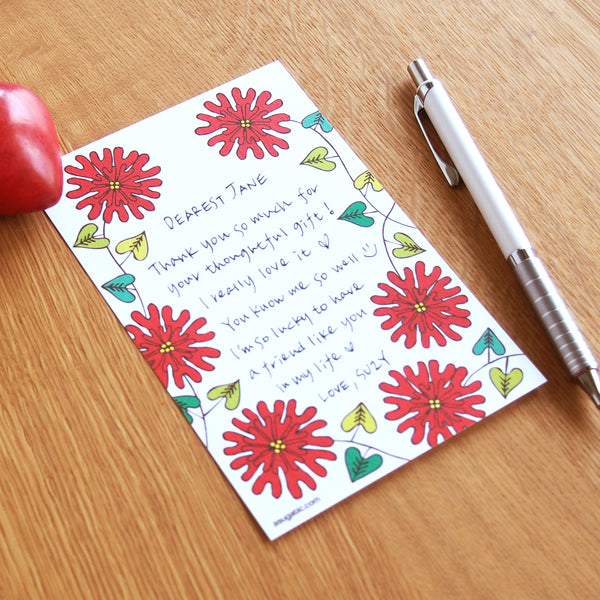 DEAREST JANE
THANK YOU SO MUCH FOR
YOUR THOUGHTFUL GIFT!
I REALLY LOVE IT ♡
YOU KNOW ME SO WELL ☺
I'M SO LUCKY TO HAVE
A FRIEND LIKE YOU
IN MY LIFE ♡
LOVE, SUZY
asugatic.com